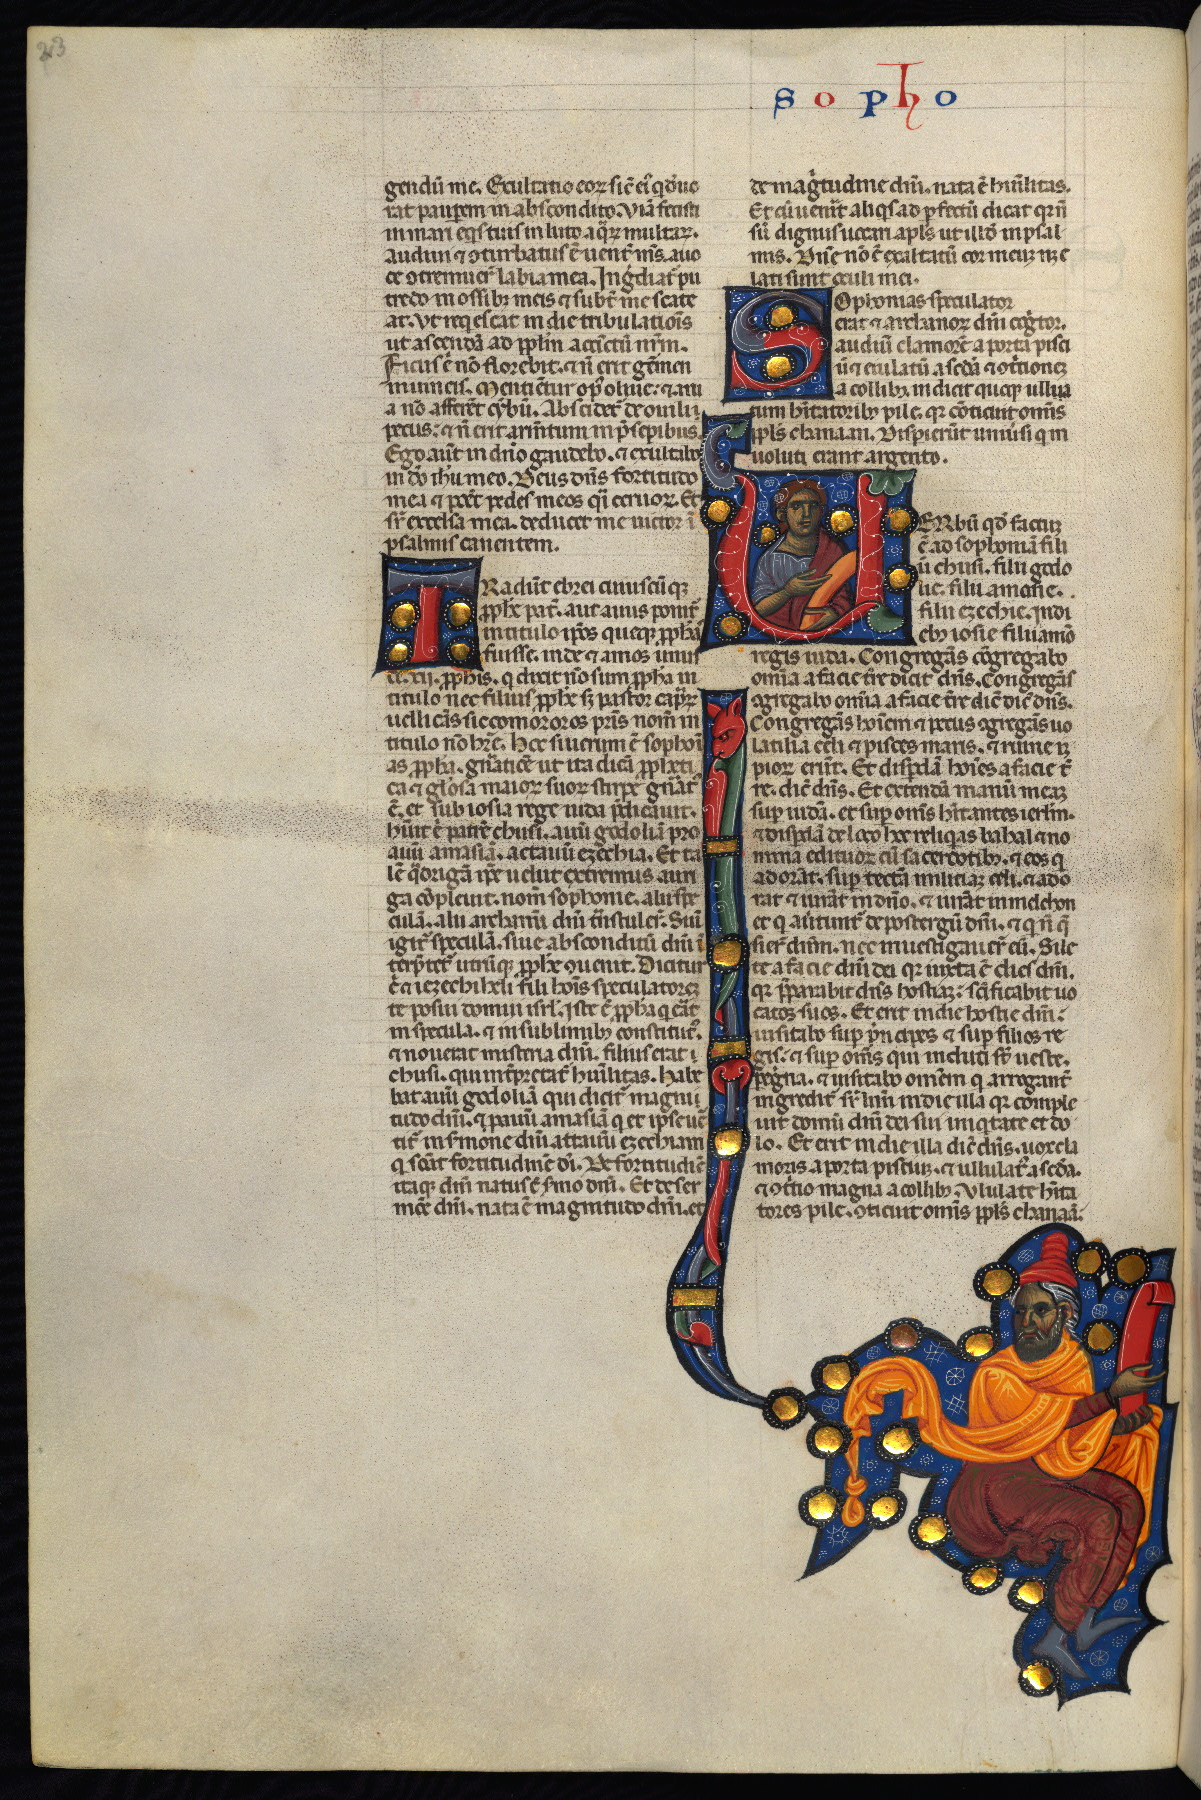 sopho
gendū me. Exultatio eoꝝ sic ei' q̇ deuo
rat pauꝑem in abscondito. Viā fecisti
in mari eq̇s tuis in luto aq̄ꝝ multaꝝ.
audiui ⁊ ꝯturbatus ē uent̄ m̄s. a uo
ce ꝯtremuer̄t labia mea. Ingrediat̄ pu
tredo in ossibꝫ meis ⁊ subt̄ me scate
at. Ut reqiescat in die tribulatiōis
ut ascendā ad pplm accīctū nr̄m.
Ficus .n. nō florebit. ⁊ n̄ erit gēmen
in uineis. Mentiet̄ur op' oliue. ⁊ aru
a nō afferēt cybū. Abscidet' de ouili
pecus. ⁊ n̄ erit armētum in p̄sepibus.
Ego aūt in dn̄o gaudebo. ⁊ exultabo
in dō ih̄u meo. Deus dn̄s fortitudo
mea ⁊ ponet pedes meos q̇i ceruoꝝ. Et
sr̄ excelsa mea. deducet me uictor ī
psalmis canentem.
TRadūt ebrei cuiuscū qꝫ
ꝓphē pat̄. aut auus ponit̄
in titulo ip̄os quoqꝫ ꝓphā
fuisse. inde ⁊ amos unus
de .xii. ꝓphis. q dixit no sum ꝓpha in
titulo nec filius ꝓphe sꝫ pastor capͬꝝ
uellicās siccomoroos pr̄is nom̄ in
titulo nō hr̄e. Hec si uerum ē sophoni
as ꝓpha. gn̄atiōe ut ita dicā ꝓpheti
ca ⁊ glosa maioꝝ suoꝝ stirpe gn̄at'
ē. et sub iosia rege iuda p̄dicauit.
Huit .n. patrē chusi. auū godoliā pro
auū amasiā. actauū ezechia. Et ta
lē q̄drigā ip̄e uelut extremus auri
ga cōpleuit. nom̄ sophonie. alii spe
culā. alii archanū dn̄i tr̄nstuler̄t. Siue
igit̄ speculā. siue absconditū dn̄i ī
terp̄tet̄ utrūqꝫ ꝓphe ꝯuenit. Dicitur
.n. ⁊ iezechiheli fili hoīs speculatorē
te posui domui isr̄l. Iste .n. ꝓpha q̄ erat
in specula. ⁊ in sublimibꝫ constitut'.
⁊ nouerat misteria dn̄i. filius erat
chusi. qui int̄pretat̄ huīlitas. habe
bat auū godoliā qui dicit̄ magni
tudo dn̄i. ⁊ ꝓauū amasiā q et ipse uē
tit̄ in s̄mone dn̄i attauū ezechiam
q sōat fortitudinē dī. De fortitudīe
itaqꝫ dn̄i natus ē s̄mo dn̄i. Et de ser
mōe dn̄i. nata ē magnitudo dn̄i. et
de magͥtudine dn̄i. nata ē humīlitas.
Et cū uenit̄ aliq̇s ad ꝑfectū dicat qr n̄
sū dignus uocari apl̄s ut illō in psal
mis. Dn̄e nō ē exaltatū cor meuꝫ nꝫ e
lati sunt oculi mei.
SOphonias speculator
erat ⁊ archanoꝝ dn̄i cogͥtor.
audiui clamorē a porta pisci
ū ⁊ eiulatū a seda ⁊ ꝯtͥtionē
a collibꝫ. indicit quoqꝫ ullula
tum hītatoribꝫ pile. qr cōticuit omīs
ppl̄s chanaan. Dispierūt uniūsi q in
uoluti erant argento.
UERbū qd̄ factuꝫ
ē ad sophoniā fili
ū chusi. filii godo
lie. filii amasie.
filii ezechie. In di
ebꝫ iosie filii amō
regis iuda. Congregās cōgregabo
omīa a facie t̄re dicit dn̄s. Congregās
ꝯgregabo omīa a facie t̄re dic̄ dn̄s.
Congregās hoīem ⁊ pecus ꝯgregās uo
latilia celi ⁊ pisces maris. ⁊ ruine ī
pioꝝ erūt. Et disꝑdā hoīes a facie t̄
re. dic̄ dn̄s. Et extendā manū meaꝫ
suꝑ iudā. et suꝑ omīs hītantes ierl̄m.
⁊ disꝑdā de loco hoc reliqas bahal ⁊ no
mina edituoꝝ cū sacerdotibꝫ. ⁊ eos q
adorāt. suꝑ tecta militiaꝫ celi. ⁊ ado
rāt ⁊ iurāt in dn̄o. ⁊ iurāt in melchon
et q auītunt̄ de postergū dn̄i. ⁊ q n̄ q̄
sier̄t dn̄m. nec inuestigauer̄t eū. Sile
te a facie dn̄i dei qr iuxta ē dies dn̄i.
qr p̄parabit dn̄s hostiaꝫ. sc̄ificabit uo
catos suos. Et erit in die hostie dn̄i.
uisitabo suꝑ p̄ncipes ⁊ suꝑ filios re
gis. ⁊ suꝑ omīs qui induti sr̄ ueste.
ꝑegͥna. ⁊ uisitabo omēm q arrogant̄
ingredit̄ sr̄ limē in die illa qr comple
uit domū dn̄i dei sui iniqtate et do
lo. Et erit in die illa dic̄ dn̄s. uox cla
moris a porta pisciuꝫ. ⁊ ullulat' a seda.
⁊ ꝯtͥtio magna a collibꝫ. Ululate hīta
tores pile. ꝯticuit omīs ppl̄s chanaā.